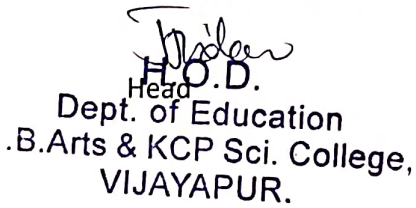 H.O.D.
Head
Dept. of Education
.B.Arts & KCP Sci. College,
VIJAYAPUR.